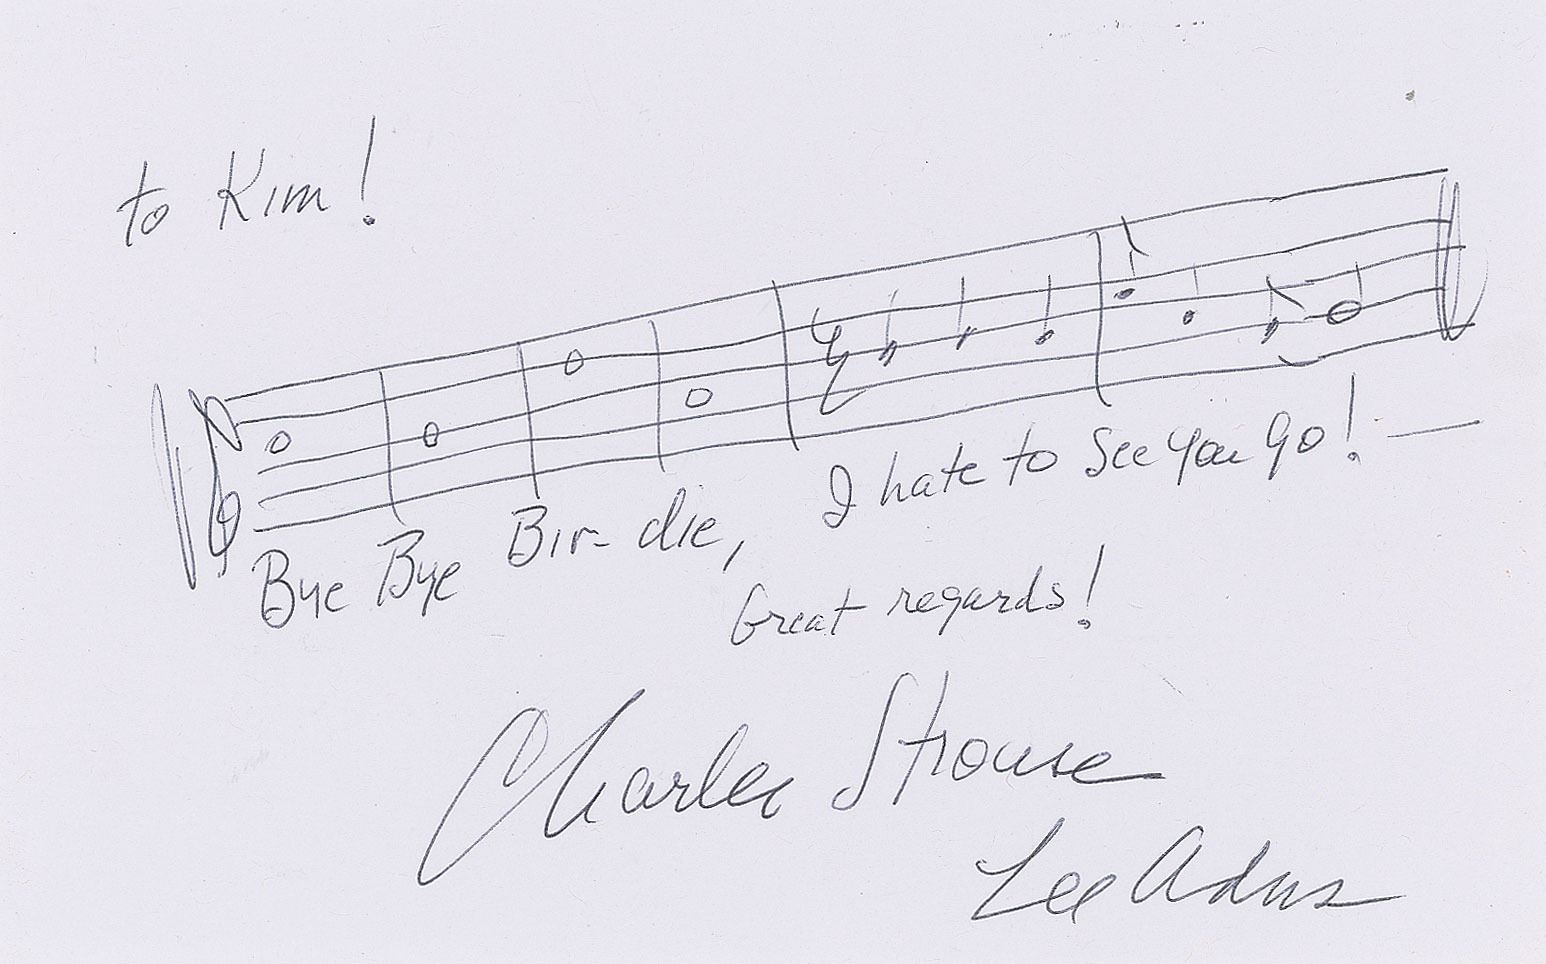 to Kim!
Bye Bye Bir- die, I hate to see you go! —
Great regards!
Charles Strouse
Lee Adams